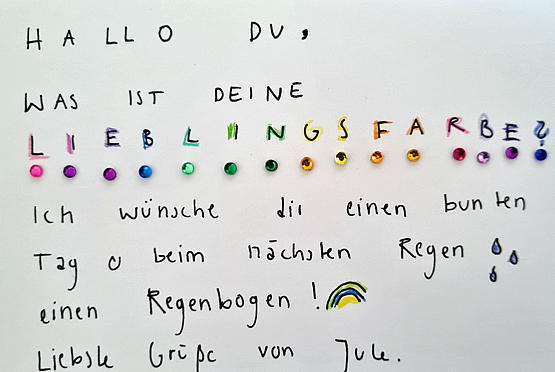 HALLO DU,
WAS IST DEINE
LIEBLINGSFARBE?
Ich wünsche dir einen bunten
Tag & beim nächsten Regen
einen Regenbogen!
Liebste Grüße von Jule.